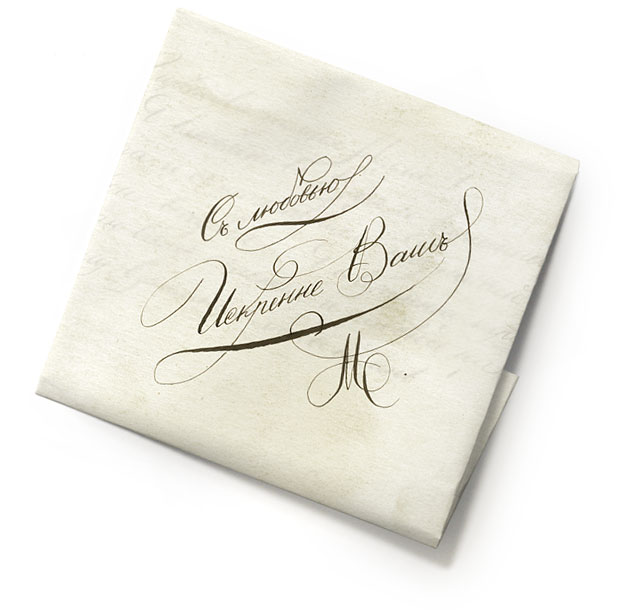 Съ любовью
Искренне Вашъ
М.